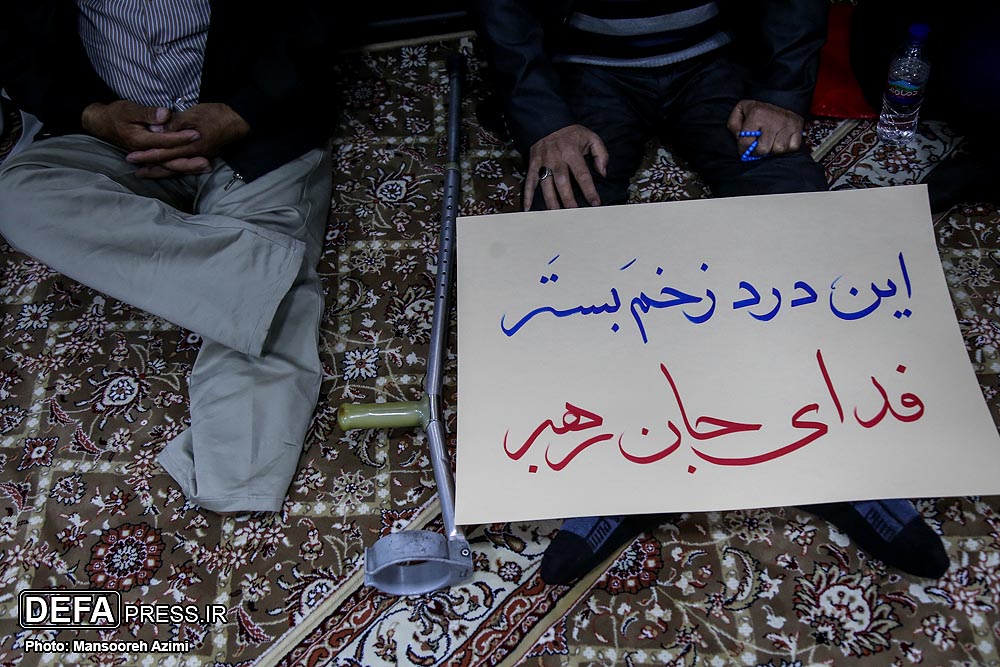 این درد زخمَ بستَر
فدای جان رهبر
DEFAPRESS.IR
Photo: Mansooreh Azimi